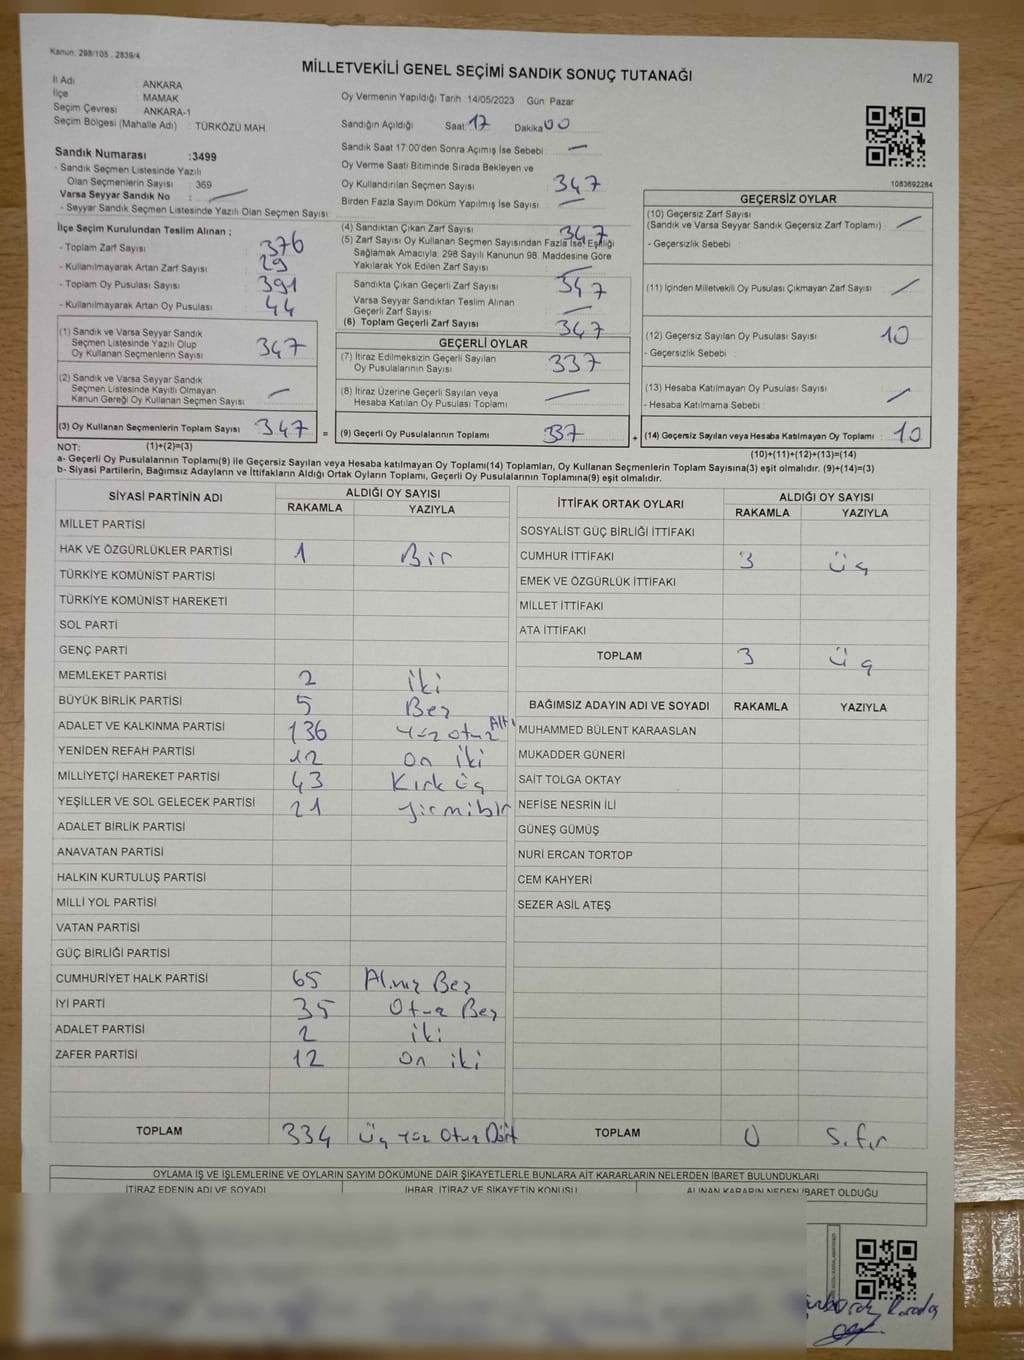 Kanun: 298/105 , 2839/4
MİLLETVEKİLİ GENEL SEÇİMİ SANDIK SONUÇ TUTANAĞI
M/2
İl Adı : ANKARA
İlçe : MAMAK
Seçim Çevresi : ANKARA-1
Seçim Bölgesi (Mahalle Adı) : TÜRKÖZÜ MAH.
Sandık Numarası :3499
- Sandık Seçmen Listesinde Yazılı
Olan Seçmenlerin Sayısı : 369
Varsa Seyyar Sandık No : —
- Seyyar Sandık Seçmen Listesinde Yazılı Olan Seçmen Sayısı :
Oy Vermenin Yapıldığı Tarih :14/05/2023 Gün: Pazar
Sandığın Açıldığı Saat: 17 Dakika 00
Sandık Saat 17:00'den Sonra Açımış İse Sebebi : —
Oy Verme Saati Bitiminde Sırada Bekleyen ve
Oy Kullandırılan Seçmen Sayısı : 347
Birden Fazla Sayım Döküm Yapılmış İse Sayısı : —
1083692284
İlçe Seçim Kurulundan Teslim Alınan ;
- Toplam Zarf Sayısı : 376
- Kullanılmayarak Artan Zarf Sayısı : 29
- Toplam Oy Pusulası Sayısı : 391
- Kullanılmayarak Artan Oy Pusulası : 44
(1) Sandık ve Varsa Seyyar Sandık
Seçmen Listesinde Yazılı Olup
Oy Kullanan Seçmenlerin Sayısı : 347
(2) Sandık ve Varsa Seyyar Sandık
Seçmen Listesinde Kayıtlı Olmayan
Kanun Gereği Oy Kullanan Seçmen Sayısı : —
(3) Oy Kullanan Seçmenlerin Toplam Sayısı : 347 =
(4) Sandıktan Çıkan Zarf Sayısı : 347
(5) Zarf Sayısı Oy Kullanan Seçmen Sayısından Fazla İse, Eşitliği
Sağlamak Amacıyla, 298 Sayılı Kanunun 98. Maddesine Göre
Yakılarak Yok Edilen Zarf Sayısı : —
Sandıkta Çıkan Geçerli Zarf Sayısı : 347
Varsa Seyyar Sandıktan Teslim Alınan
Geçerli Zarf Sayısı : —
(6) Toplam Geçerli Zarf Sayısı : 347
GEÇERLİ OYLAR
(7) İtiraz Edilmeksizin Geçerli Sayılan
Oy Pusulalarının Sayısı : 337
(8) İtiraz Üzerine Geçerli Sayılan veya
Hesaba Katılan Oy Pusulası Toplamı : —
(9) Geçerli Oy Pusulalarının Toplamı : 337 +
GEÇERSİZ OYLAR
(10) Geçersiz Zarf Sayısı
(Sandık ve Varsa Seyyar Sandık Geçersiz Zarf Toplamı) : —
- Geçersizlik Sebebi :
(11) İçinden Milletvekili Oy Pusulası Çıkmayan Zarf Sayısı : —
(12) Geçersiz Sayılan Oy Pusulası Sayısı : 10
- Geçersizlik Sebebi :
(13) Hesaba Katılmayan Oy Pusulası Sayısı : —
- Hesaba Katılmama Sebebi :
(14) Geçersiz Sayılan veya Hesaba Katılmayan Oy Toplamı : 10
NOT: (1)+(2)=(3)
(10)+(11)+(12)+(13)=(14)
a- Geçerli Oy Pusulalarının Toplamı(9) ile Geçersiz Sayılan veya Hesaba katılmayan Oy Toplamı(14) Toplamları, Oy Kullanan Seçmenlerin Toplam Sayısına(3) eşit olmalıdır. (9)+(14)=(3)
b- Siyasi Partilerin, Bağımsız Adayların ve İttifakların Aldığı Ortak Oyların Toplamı, Geçerli Oy Pusulalarının Toplamına(9) eşit olmalıdır.
SİYASİ PARTİNİN ADI ALDIĞI OY SAYISI
RAKAMLA YAZIYLA
MİLLET PARTİSİ
HAK VE ÖZGÜRLÜKLER PARTİSİ 1 Bir
TÜRKİYE KOMÜNİST PARTİSİ
TÜRKİYE KOMÜNİST HAREKETİ
SOL PARTİ
GENÇ PARTİ
MEMLEKET PARTİSİ 2 iki
BÜYÜK BİRLİK PARTİSİ 5 Beş
ADALET VE KALKINMA PARTİSİ 136 Yüz otuz Altı
YENİDEN REFAH PARTİSİ 12 on iki
MİLLİYETÇİ HAREKET PARTİSİ 43 Kırk üç
YEŞİLLER VE SOL GELECEK PARTİSİ 21 yirmibir
ADALET BİRLİK PARTİSİ
ANAVATAN PARTİSİ
HALKIN KURTULUŞ PARTİSİ
MİLLİ YOL PARTİSİ
VATAN PARTİSİ
GÜÇ BİRLİĞİ PARTİSİ
CUMHURİYET HALK PARTİSİ 65 Altmış Beş
İYİ PARTİ 35 Otuz Beş
ADALET PARTİSİ 2 iki
ZAFER PARTİSİ 12 on iki
TOPLAM 334 Üç Yüz Otuz Dört
İTTİFAK ORTAK OYLARI ALDIĞI OY SAYISI
RAKAMLA YAZIYLA
SOSYALİST GÜÇ BİRLİĞİ İTTİFAKI
CUMHUR İTTİFAKI 3 üç
EMEK VE ÖZGÜRLÜK İTTİFAKI
MİLLET İTTİFAKI
ATA İTTİFAKI
TOPLAM 3 üç
BAĞIMSIZ ADAYIN ADI VE SOYADI RAKAMLA YAZIYLA
MUHAMMED BÜLENT KARAASLAN
MUKADDER GÜNERİ
SAİT TOLGA OKTAY
NEFİSE NESRİN İLİ
GÜNEŞ GÜMÜŞ
NURİ ERCAN TORTOP
CEM KAHYERİ
SEZER ASİL ATEŞ
TOPLAM 0 Sıfır
OYLAMA İŞ VE İŞLEMLERİNE VE OYLARIN SAYIM DÖKÜMÜNE DAİR ŞİKAYETLERLE BUNLARA AİT KARARLARIN NELERDEN İBARET BULUNDUKLARI
İTİRAZ EDENİN ADI VE SOYADI İHBAR, İTİRAZ VE ŞİKAYETİN KONUSU ALINAN KARARIN NEDEN İBARET OLDUĞU